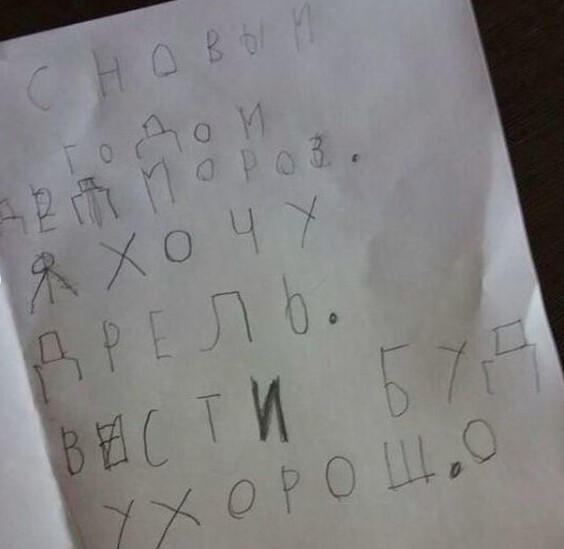 С НОВЫМ
ГОДОМ
ДЕД МОРОЗ.
Я ХОЧУ
ДРЕЛЬ.
ВЕСТИ БУД
У ХОРОШ.О